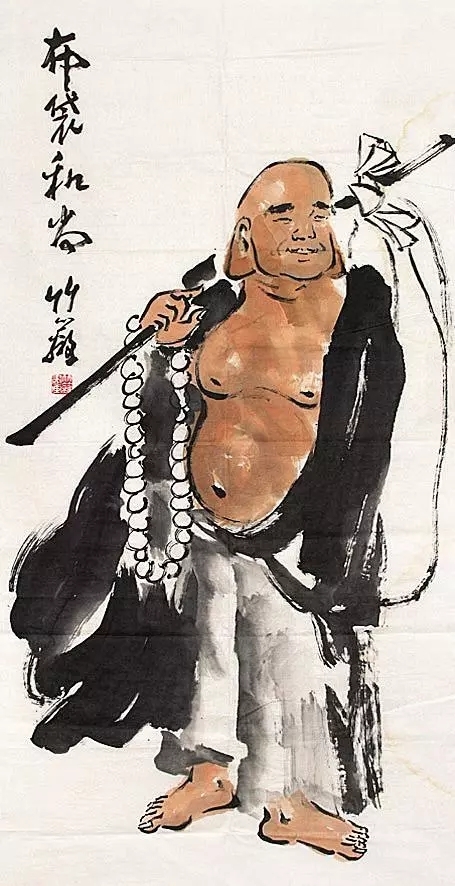 布袋和尚 竹